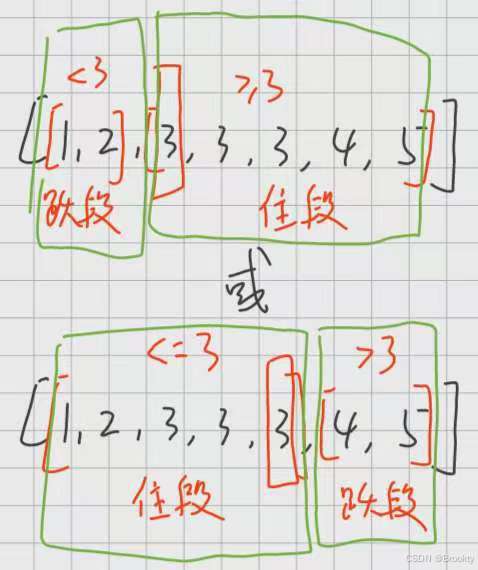 <3 ≥3
[[1,2],[3,3,3,4,5]]
跃段 住段
或
<=3 >3
[[1,2,3,3,3],[4,5]]
住段 跃段
CSDN @Brookty